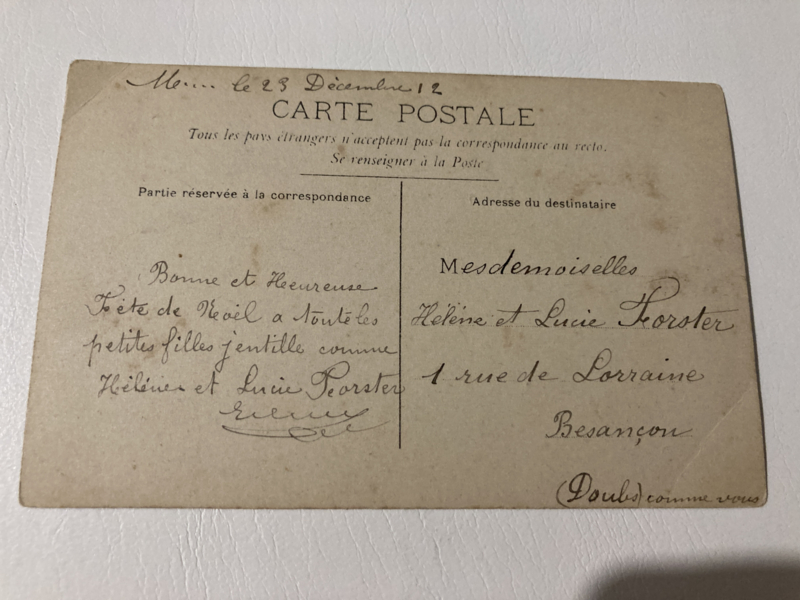 le 23 Décembre 12
CARTE POSTALE
Tous les pays étrangers n'acceptent pas la correspondance au recto.
Se renseigner à la Poste
Partie réservée à la correspondance
Bonne et Heureuse
Fête de Noël a toute les
petites filles jentille comme
Hélène et Lucie Forster
Adresse du destinataire
Mesdemoiselles
Hélène et Lucie Forster
1 rue de Lorraine
Besançon
(Doubs) comme vous